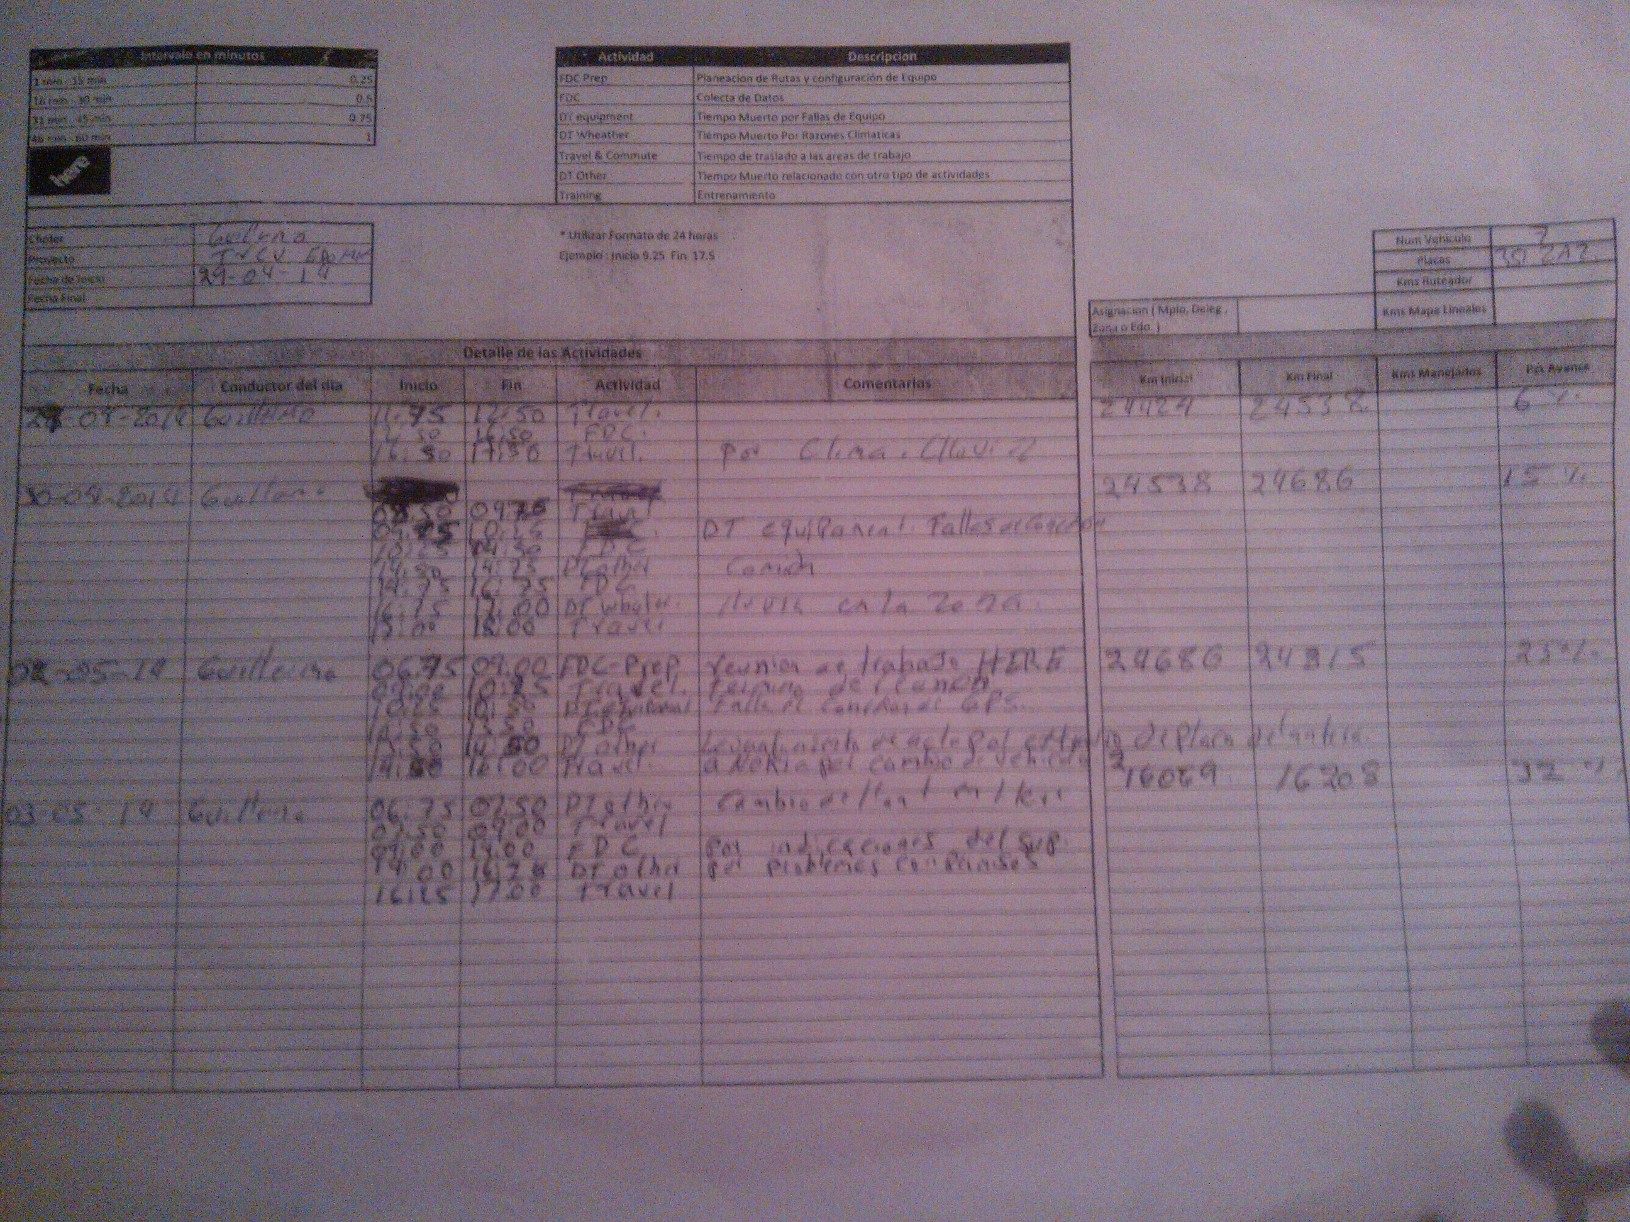 Intervalo en minutos
1 min - 15 min 0.25
16 min - 30 min 0.5
31 min - 45 min 0.75
46 min - 60 min 1
here
Actividad Descripcion
FDC Prep Planeacion de Rutas y configuración de Equipo
FDC Colecta de Datos
DT equipment Tiempo Muerto por Fallas de Equipo
DT Wheather Tiempo Muerto Por Razones Climaticas
Travel & Commute Tiempo de traslado a las areas de trabajo
DT Other Tiempo Muerto relacionado con otro tipo de actividades
Training Entrenamiento
Chofer Guillermo
Proyecto
Fecha de Inicio 29-04-14
Fecha Final
* Utilizar Formato de 24 horas
Ejemplo : Inicio 9.25 Fin: 17.5
Num Vehiculo 7
Placas
Kms Ruteador
Kms Mapa Lineales
Asignacion ( Mpio, Deleg ,
Zona o Edo. )
Detalle de las Actividades
Fecha Conductor del dia Inicio Fin Actividad Comentarios Km Inicial Km Final Kms Manejados Pct Avance
Guillermo 11:75 12:50 Travel. 24424 24538 6 %
12:50 16:50 FDC.
16:50 17:50 Travel. por Clima
Guillermo 24538 24686 15 %
08:50 09:75 Travel
09:75 10:25 DT equipment Fallas de conexion
10:25 14:50 FDC
14:50 14:75 DT other Comida
14:75 16:75 FDC
16:75 17:00 DT lluvia en la zona
18:00 Travel
02-05-14 Guillermo 06:75 09:00 FDC-Prep. reunion de trabajo HERE 24686 24815 23%
09:00 10:25 Travel. Termino de reunion
10:25 10:50 Falla de conexion de GPS.
10:50 13:50 FDC
13:50 DT other Levantamiento de acta por de placa delantera.
16:00 Travel. a Nokia por cambio de vehiculo 16069 16208 32 %
03-05-14 Guillermo 06:75 07:50 DT other Cambio de
07:50 09:00 Travel
09:00 14:00 FDC por indicaciones del sup.
14:00 16:25 DT other por problemas con permisos
16:25 17:00 Travel